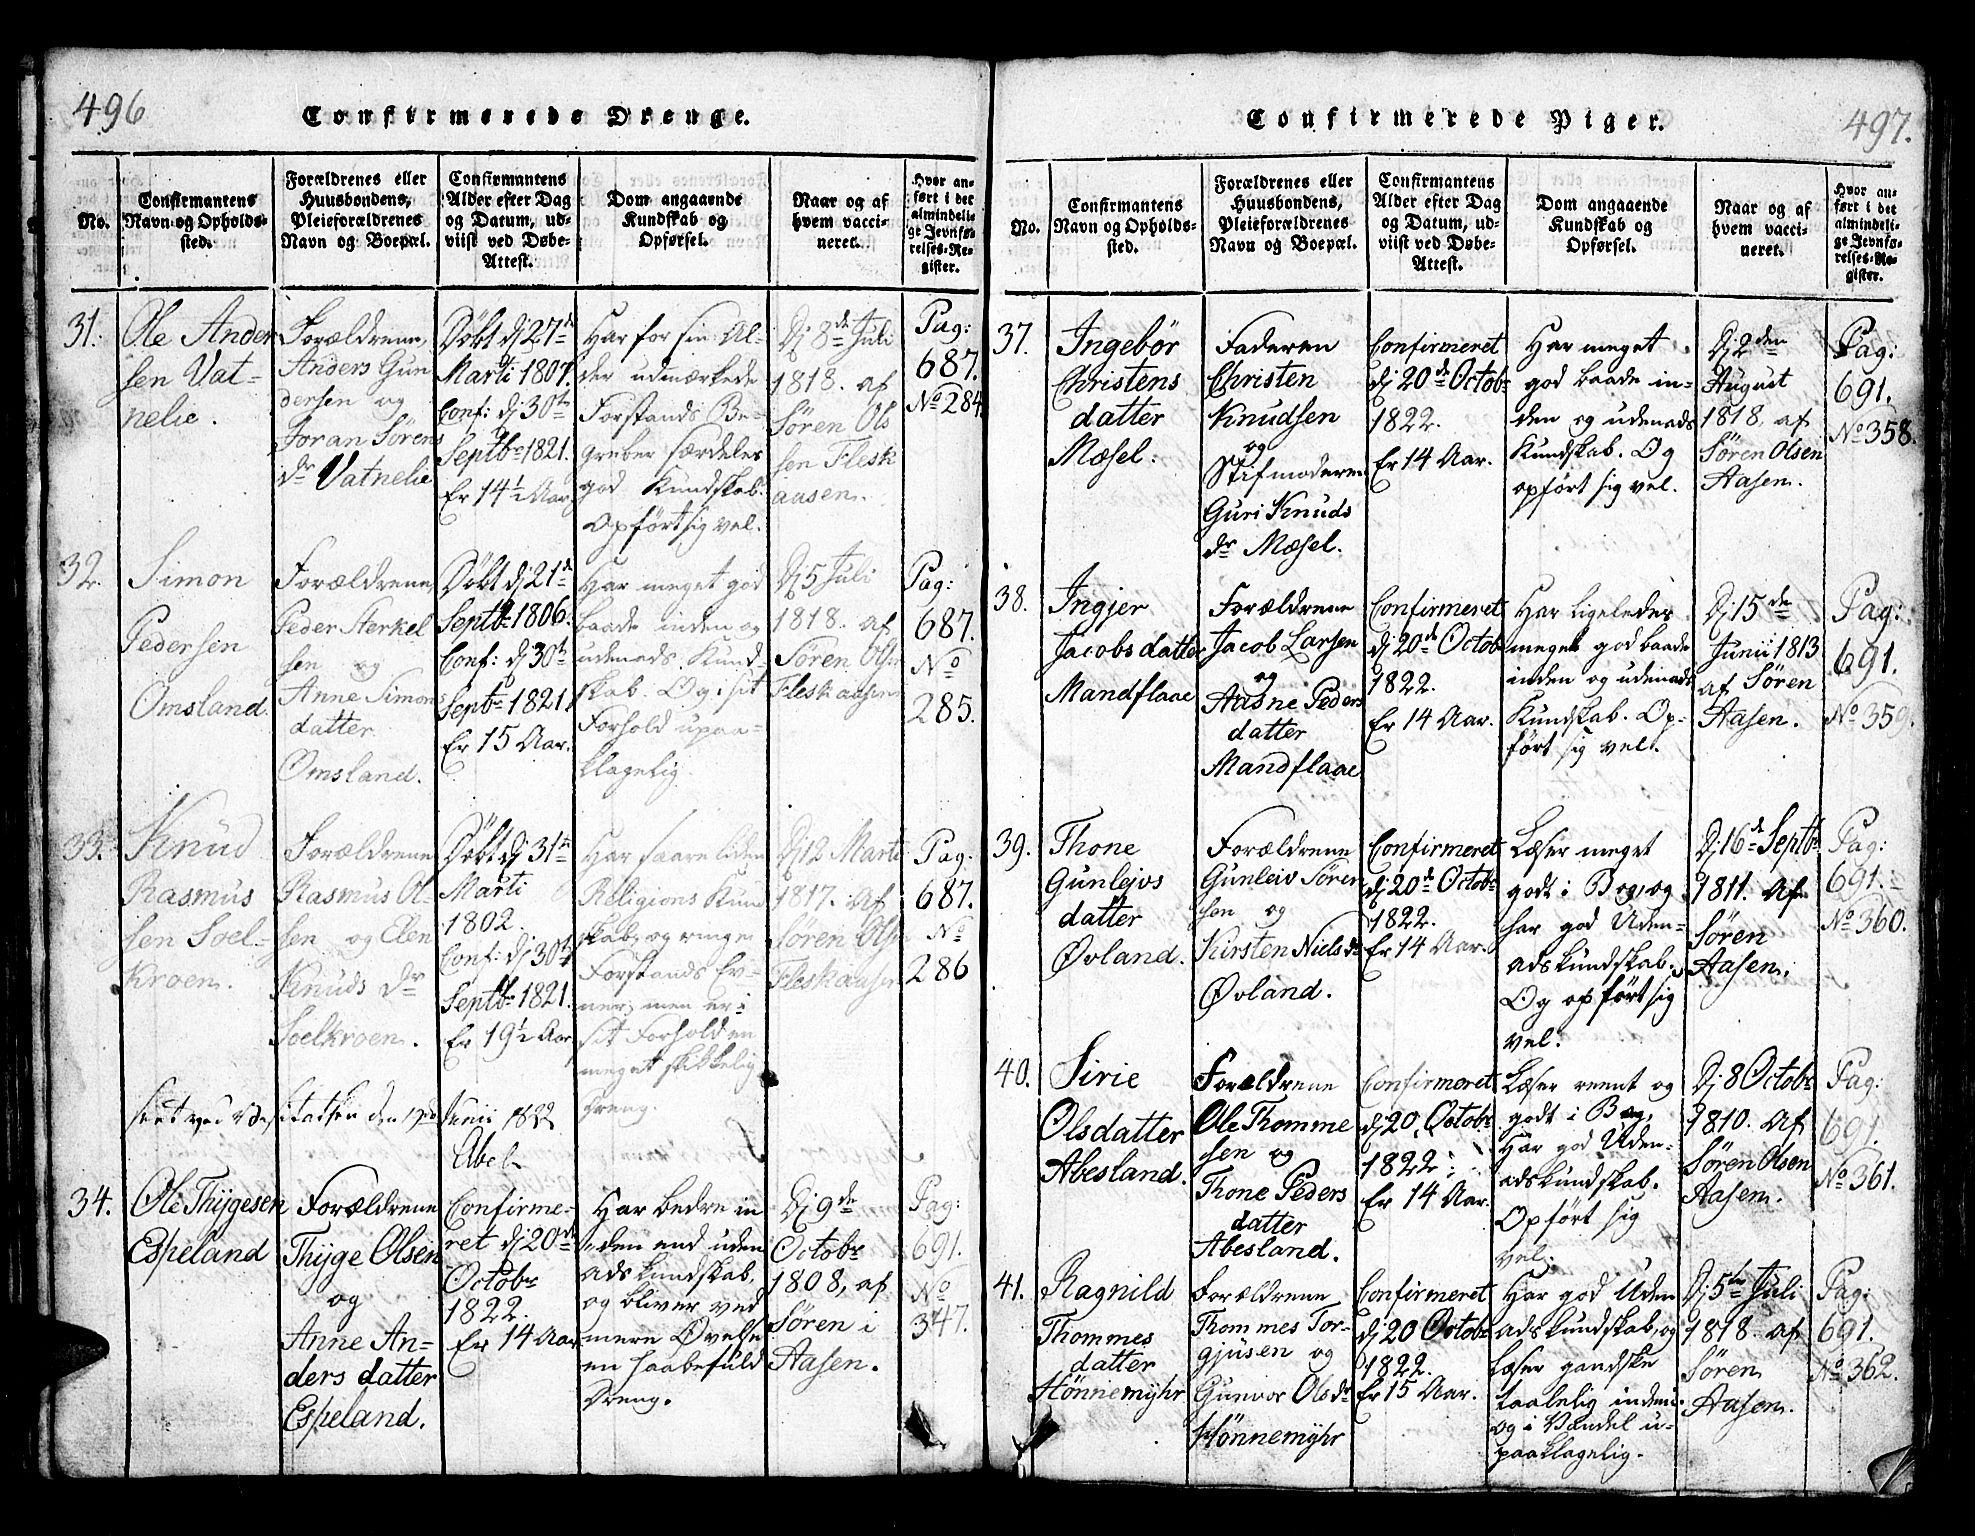 496
Confirmerede Drenge.
No.
Confirmantens
Navn og Opholds-
sted.
Forældrenes eller
Huusbondens,
Pleieforældrenes
Navn og Boepæl.
Confirmantens
Alder efter Dag
og Datum, ud-
viist ved Døbe-
Attest.
Dom angaaende
Kundskab og
Opførsel.
Naar og af
hvem vacci-
neret.
Hvor an-
ført i det
almindeli-
ge Jevnfø-
relses-Re-
gister.
31.
Ole Ander
sen Vat-
nelie.
Forældrene,
Anders Gun
dersen og
Joran Sörens
dr Vatnelie
Döbt dj 27de
Marti 1807.
Conf: dj 30te
Septbr 1821.
Er 14 1/2 Aar
Har for sin Al-
der udmærkede
Forstands Be-
greber særdeles
god Kundskab.
Opført sig vel.
Dj 8de Juli
1818. af
Sören Ols
sen Flesk
aasen.
Pag:
687.
No 284.
32.
Simon
Pedersen
Omsland.
Forældrene,
Peder Sterkel
sen og
Anne Simons
datter
Omsland.
Döbt dj 21de
Septbr 1806.
Conf: dj 30te
Septbr 1821.
Er 15 Aar.
Har meget god
baade inden og
udenads Kund-
skab. Og i sit
Forhold upaa-
klagelig.
Dj 5 Juli
1818. af
Sören Olsen
Fleskaasen
Pag:
687.
No
285.
33.
Knud
Rasmus
sen Soel-
kroen.
Forældrene
Rasmus Ol-
sen og Elen
Knuds dr
Soelkroen.
Döbt dj 31te
Marti
1802.
Conf: dj 30te
Septbr 1821.
Er 19 1/2 Aar
Har saare liden
Religions Kund
skab, og ringe
Forstands Ev-
ner, men er i
sit Forhold en
meget skikkelig
Dreng.
Dj 12 Marti
1817. af
Sören Olsen
Fleskaasen
Pag.
687.
No
286
seet ved Visitatsen den 17de Junii 1822
Abel
34.
Ole Thijgesen
Espeland
Forældrene
Thijge Olsen
og
Anne An-
ders datter
Espeland.
Confirme-
ret dj 20de
Octobr
1822.
Er 14 Aar
Har bedre in
den end uden
adskundskab,
og bliver ved
mere Øvelse
en haabefuld
Dreng.
Dj 9de
Octobr
1808, af
Sören i
Aasen.
Pag:
691.
No
347.
497.
Confirmerede Piger.
No.
Confirmantens
Navn og Opholds-
sted.
Forældrenes eller
Huusbondens,
Pleieforældrenes
Navn og Boepæl.
Confirmantens
Alder efter Dag
og Datum, ud-
viist ved Døbe-
Attest.
Dom angaaende
Kundskab og
Opførsel.
Naar og af
hvem vacci-
neret.
Hvor an-
ført i det
almindeli-
ge Jevnfø-
relses-Re-
gister.
37.
Ingebör
Christens
datter
Mæsel.
Faderen
Christen
Knudsen
og
Stifmoderen
Guri Knuds
dr Mæsel.
Confirmeret
dj 20de Octobr
1822.
Er 14 Aar.
Har meget
god baade in-
den og udenads
Kundskab. Og
opført sig vel.
Dj 2den
August
1818, af
Sören Olsen
Aasen.
Pag:
691.
No 358.
38.
Ingjer
Jacobsdatter
Mandflaae
Forældrene
Jacob Larsen
og
Aasne Peders
datter
Mandflaae
Confirmeret
dj 20de Octobr
1822.
Er 14 Aar.
Har ligeledes
meget god baade
inden og udenads
Kundskab. Op-
ført sig vel.
Dj 15de
Junii 1813
af Sören
Aasen.
Pag:
691.
No 359.
39.
Thone
Gunlejvs
datter
Øvland.
Forældrene
Gunleiv Sören
sen og
Kirsten Niels dr
Øvland.
Confirmeret
dj 20de Octobr
1822.
Er 14 Aar.
Læser meget
godt i Bog, og
har god Uden-
adskundskab.
Og opført sig
vel.
Dj 16de Septbr
1811. Af
Sören
Aasen.
Pag:
691.
No 360.
40.
Sirie
Olsdatter
Abesland.
Forældrene
Ole Thomme
sen og
Thone Peders
datter
Abesland.
Confirmeret
dj 20 Octobr
1822.
Er 14 Aar.
Læser reent og
godt i Bog,
Har god Uden-
adskundskab.
Opført sig
vel.
Dj 8 Octobr
1810. Af
Sören Olsen
Aasen.
Pag:
691.
No 361.
41.
Ragnild
Thommes
datter
Hönnemyhr
Forældrene
Thommes Tor-
gjusen og
Gunvor Olsdr
Hönnemyhr
Confirmeret
dj 20 Octobr
1822.
Er 15 Aar.
Har god Uden
adskundskab, og
læser gandske
taalelig inden,
og i Vandel u-
paaklagelig.
Dj 5te Juli
1818. af
Sören
Aasen.
Pag:
691.
No 362.